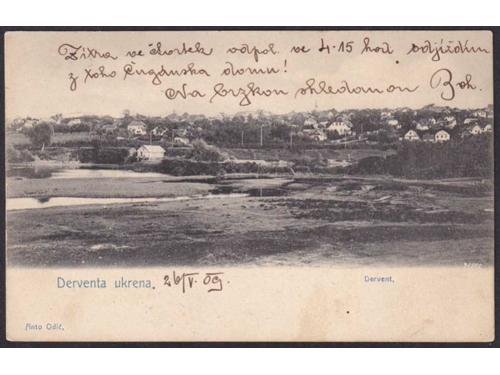 Zítra ve čtvrtek odpol. ve 4·15 hod odjíždím
z toho Cugánska domu!
Na brzkou shledanou Boh.
Derventa ukrena. 26/V. 09.
Dervent,
Anto Odić,